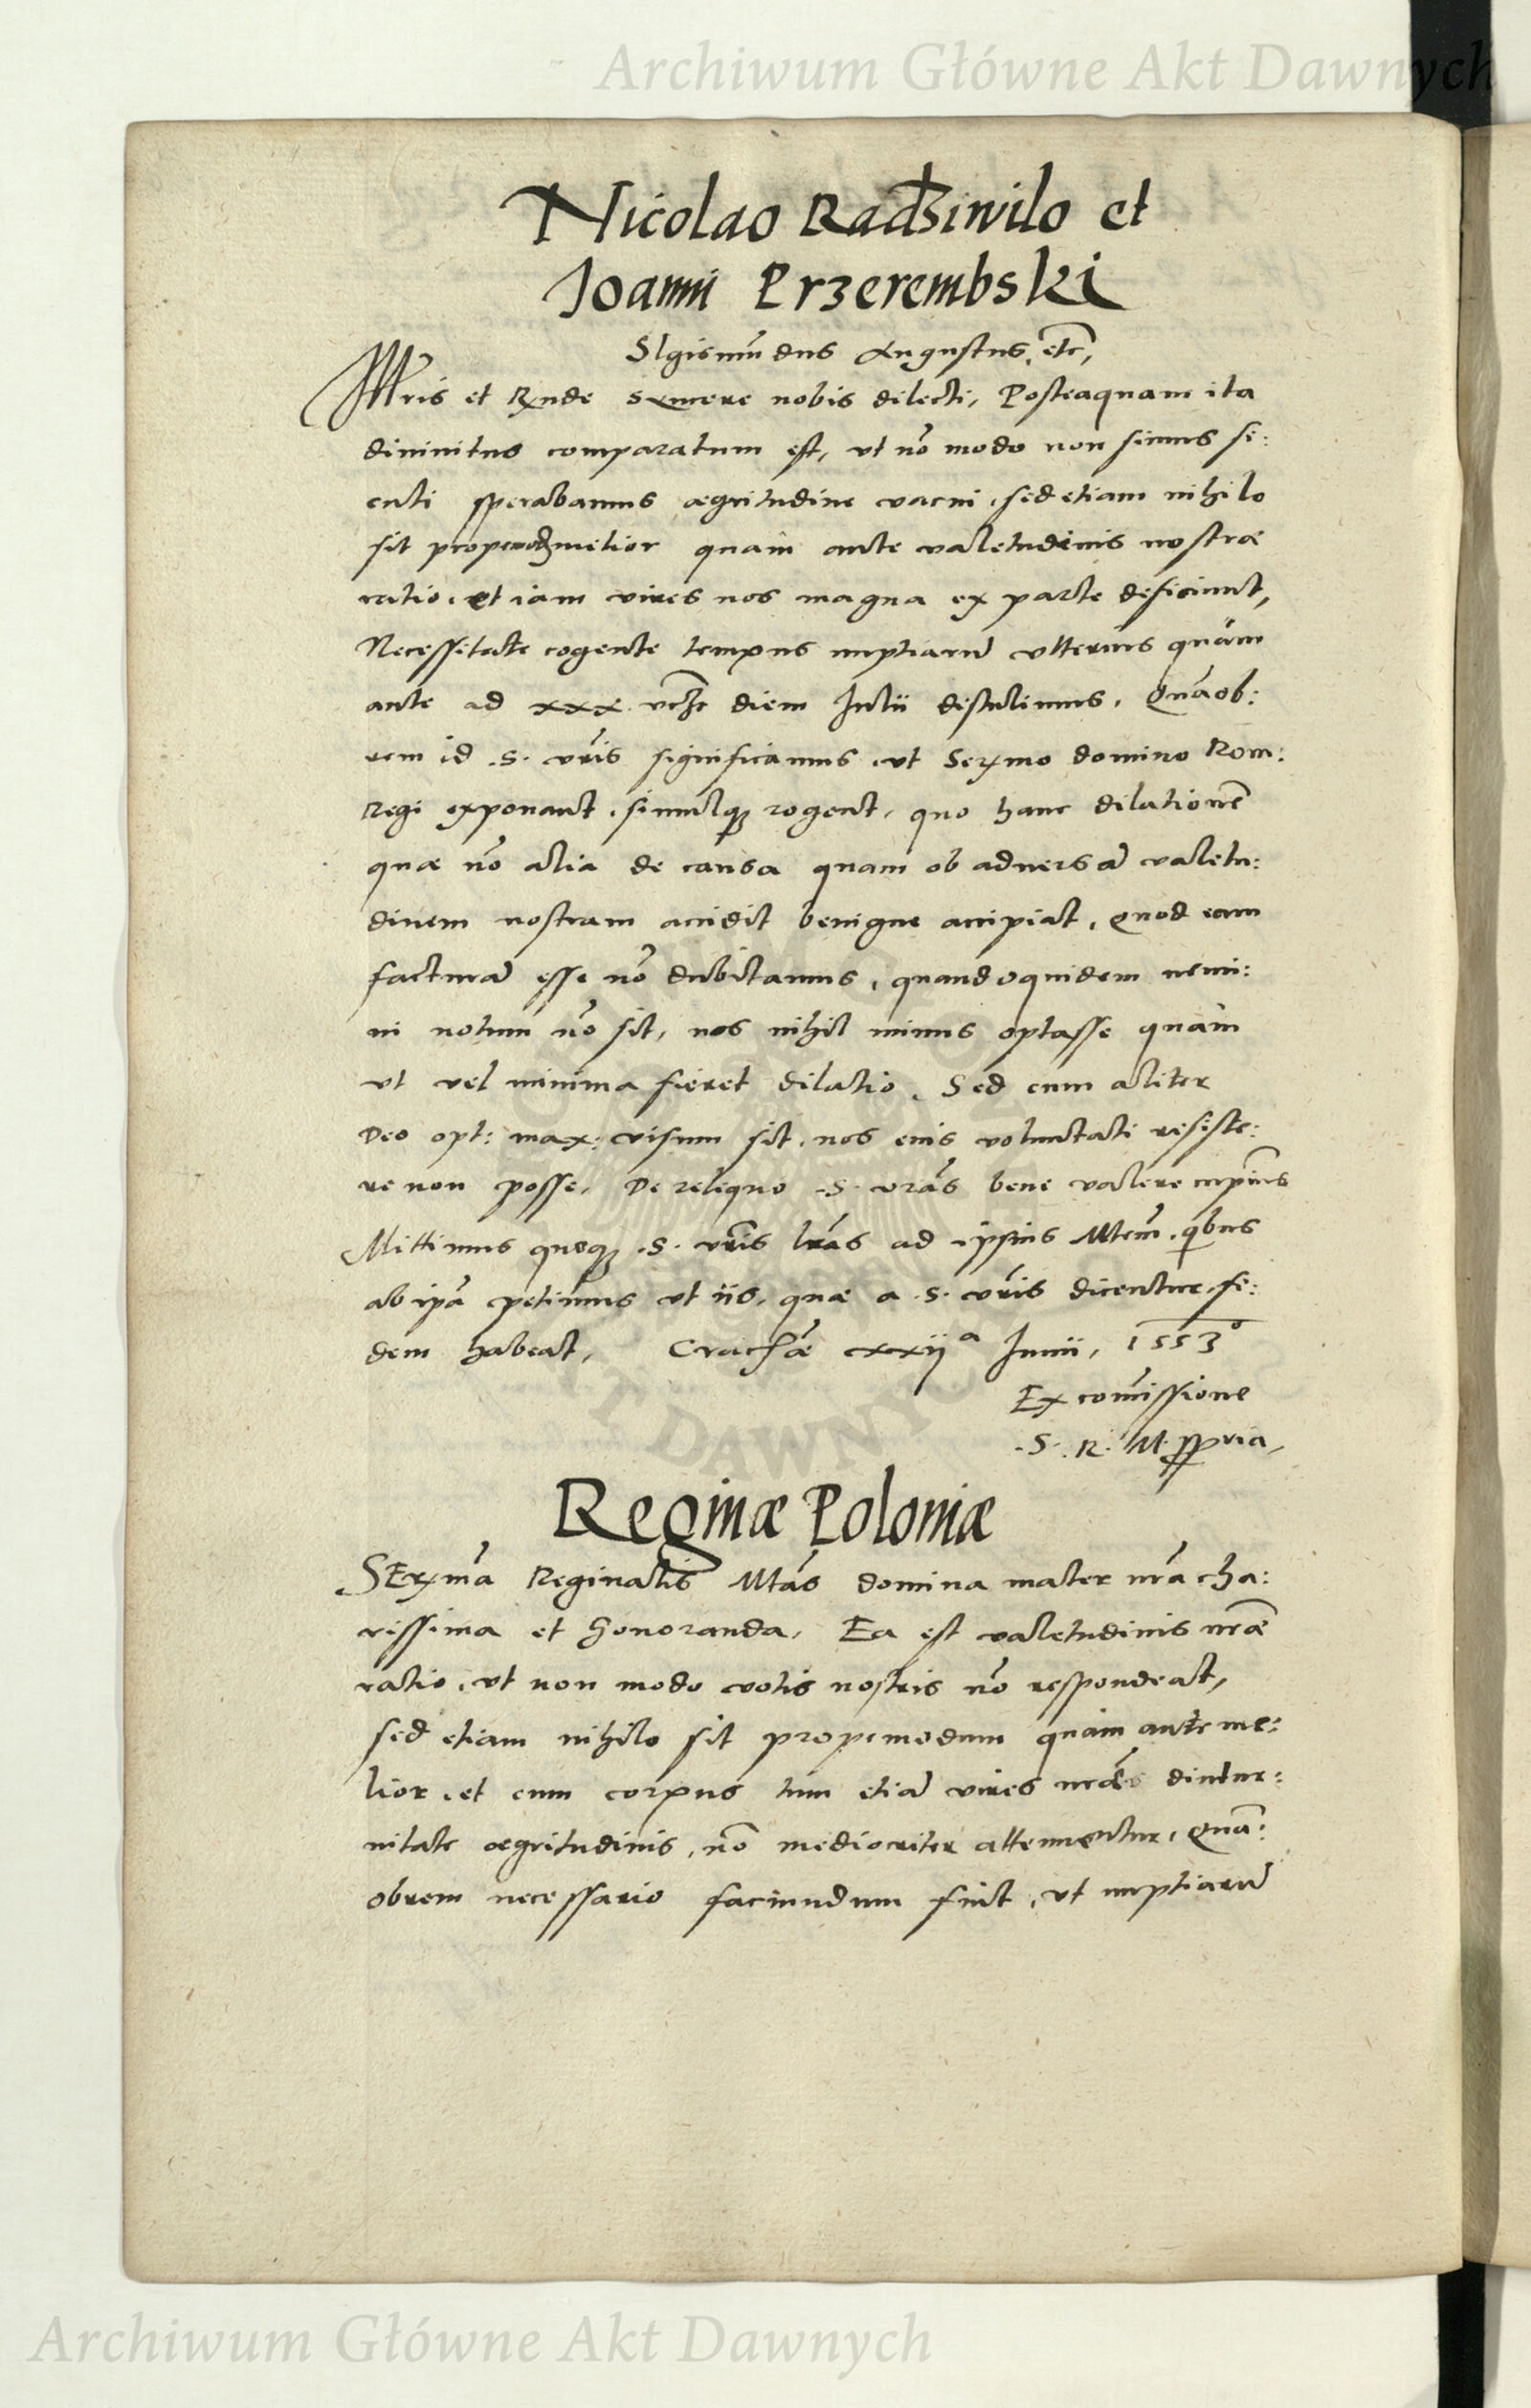 Archiwum Główne Akt Dawnych
Nicolao Radziwilo et
Joanni Przerembski
SIgismūdus Augustus, etc̄,
Illris et Rnde syncere nobis dilecti, Posteaquam ita
diuinitus comparatum est, vt nō modo non simus si:
cuti sperabamus aegritudine vacui, sed etiam nihilo
sit propemodū melior quàm ante valetudinis nostrae
ratio, et iam vires nos magna ex parte deficiunt,
Necessitate cogente tempus nuptiarū vlterius quàm
ante ad xxx diem Julii distulimus, Quāob:
rem id .S. vr̄is significamus, vt Serxmo domino Rom:
Regi exponant, simulq3 rogent, quo hanc dilationē
quae nō alia de causa quam ob aduersā valetu:
dinem nostram accidit benigne accipiat, Quod eam
facturā esse nō dubitamus, quandoquidem nemi:
ni notum nō sit, nos nihil minus optasse quàm
vt vel minima fieret dilatio, Sed cum aliter
Deo opt: max: visum sit, nos eius voluntati resiste:
re non posse, De reliquo .S. vrās bene valere cupim̄s
Mittimus quoq3 .S. vr̄is lrās ad ipsius Mtem̄, qibus
ab ipā petimus vt iis, quae a .S. vr̄is dicentur, fi:
dem habeat, Cracho͞ae xxij a Junii, 1553o
Ex com̄issione
.S. R. M. ppria,
Reginae Poloniae
SErxmā Reginalis Mtās domina mater nrā cha:
rissima et honoranda, Ea est valetudinis nrāe
ratio, vt non modo votis nostris nō respondeat,
sed etiam nihilo sit propemodum quàm ante me:
lior, et cum corpus tum etiā vires nrāe diutur:
nitate aegritudinis, nō mediocriter attenuentur, Quā:
obrem necessario faciundum fuit, vt nuptiarū
Archiwum Główne Akt Dawnych